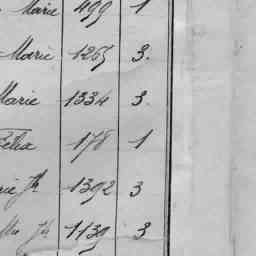 Marie 499 1
Marie 1265 3.
Marie 1334 3.
Félix 178 1
Jh 1392 3
Jh 1139 3